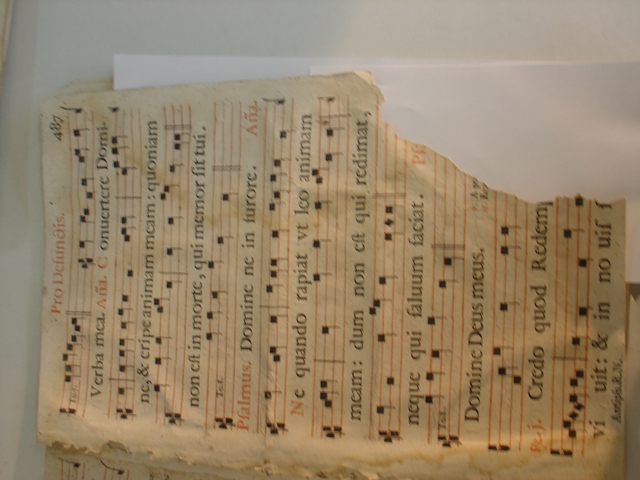 Pro Defunctis. 487
Verba mea. Aña. C onuertere Domi-
ne, & eripe animam meam: quoniam
non eſt in morte, qui memor ſit tui.
Pſalmus. Domine ne in furore. Aña.
Ne quando rapiat vt leo animam
meam: dum non eſt qui redimat,
neque qui ſaluum faciat. Pſ
Domine Deus meus.
Credo quod Redem
vi uit: & in no uiſ ſ